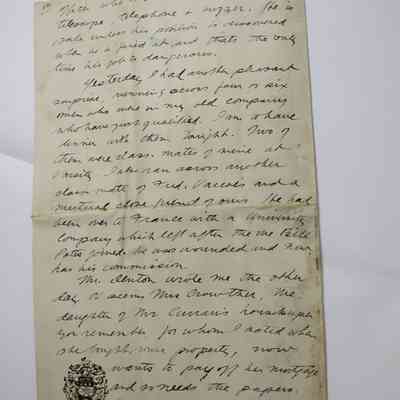 telescope, telephone + buzzer. He is
safe unless his position is discovered
when as a fixed at, and that's the only
time his job is dangerous.
Yesterday I had another pleasant
surprise, running across four or six
men who were in my old company
who have just qualified. I am to have
dinner with them tonight. Two of
them were class-mates of mine at
Varsity. I also ran across another
class mate of Fred. Vaccoes and a
mutual close friend of ours. He had
been over to France with a University
Company which left after the one
Pote joined. He was wounded and now
has his commission.
Mr. Denton wrote me the other
day. It seems Mrs Crowther, the
daughter of Mr Curran's housekeeper
you remember for whom I acted when
she bought some property, now
wants to pay off her mortgage
and so needs the papers.